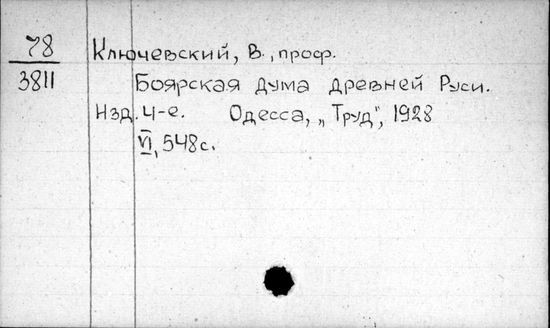 78
3811
Ключевский, В., проф.
Боярская дума древней Руси.
Изд. 4-е. Одесса, „Труд", 1928
VI, 548с.